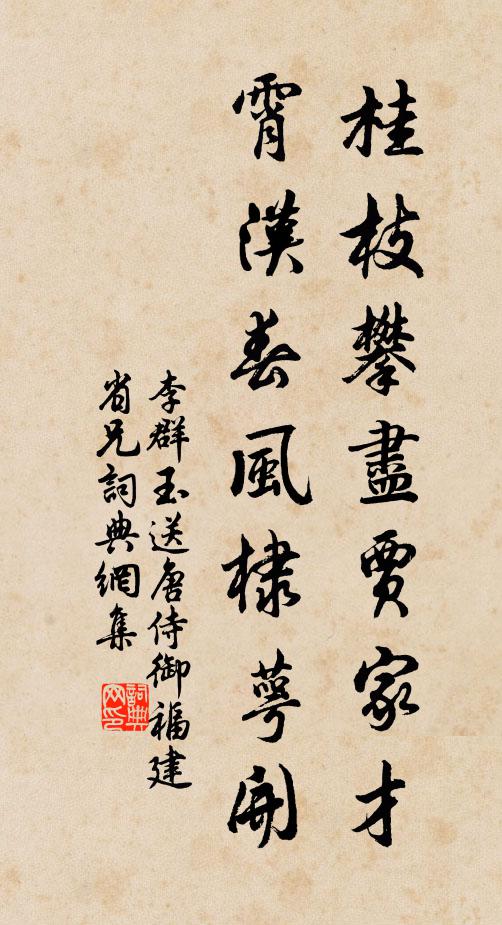 桂枝攀盡賈家才
霄漢春風棣萼開
李群玉送唐侍御福建
省兄詞典網集
詞典
网印